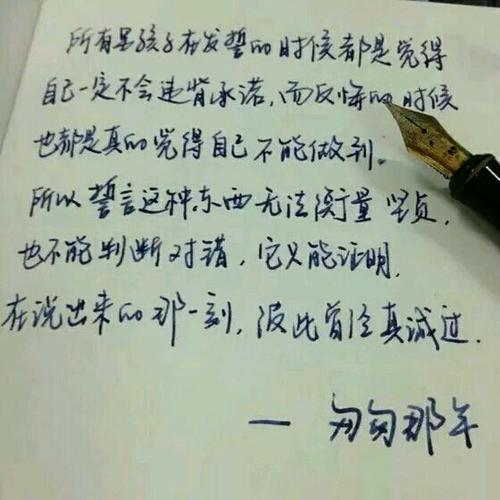 所有男孩子在发誓的时候都是觉得
自己一定不会违背承诺，而反悔的时候
也都是真的觉得自己不能做到。
所以誓言这种东西无法衡量坚贞，
也不能判断对错，它只能证明，
在说出来的那一刻，彼此曾经真诚过．
— 匆匆那年